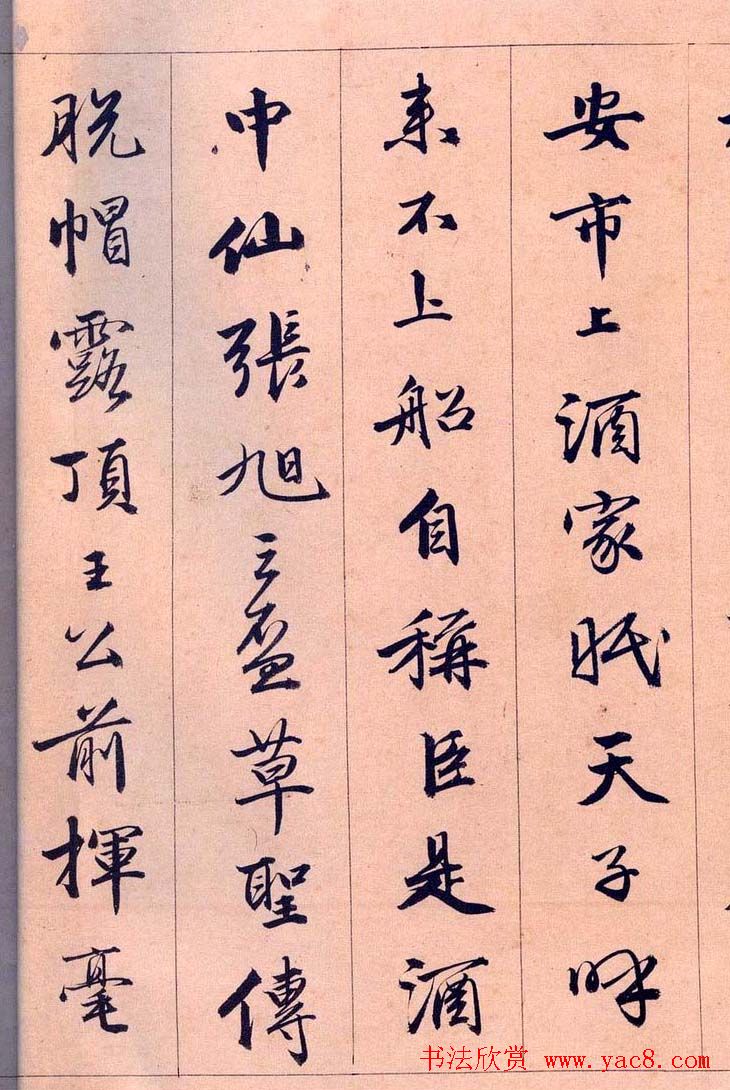 安市上酒家眠天子呼
来不上船自稱臣是酒
中仙張旭三盃草聖傳
脱帽露頂王公前揮毫
书法欣赏 www.yac8.com